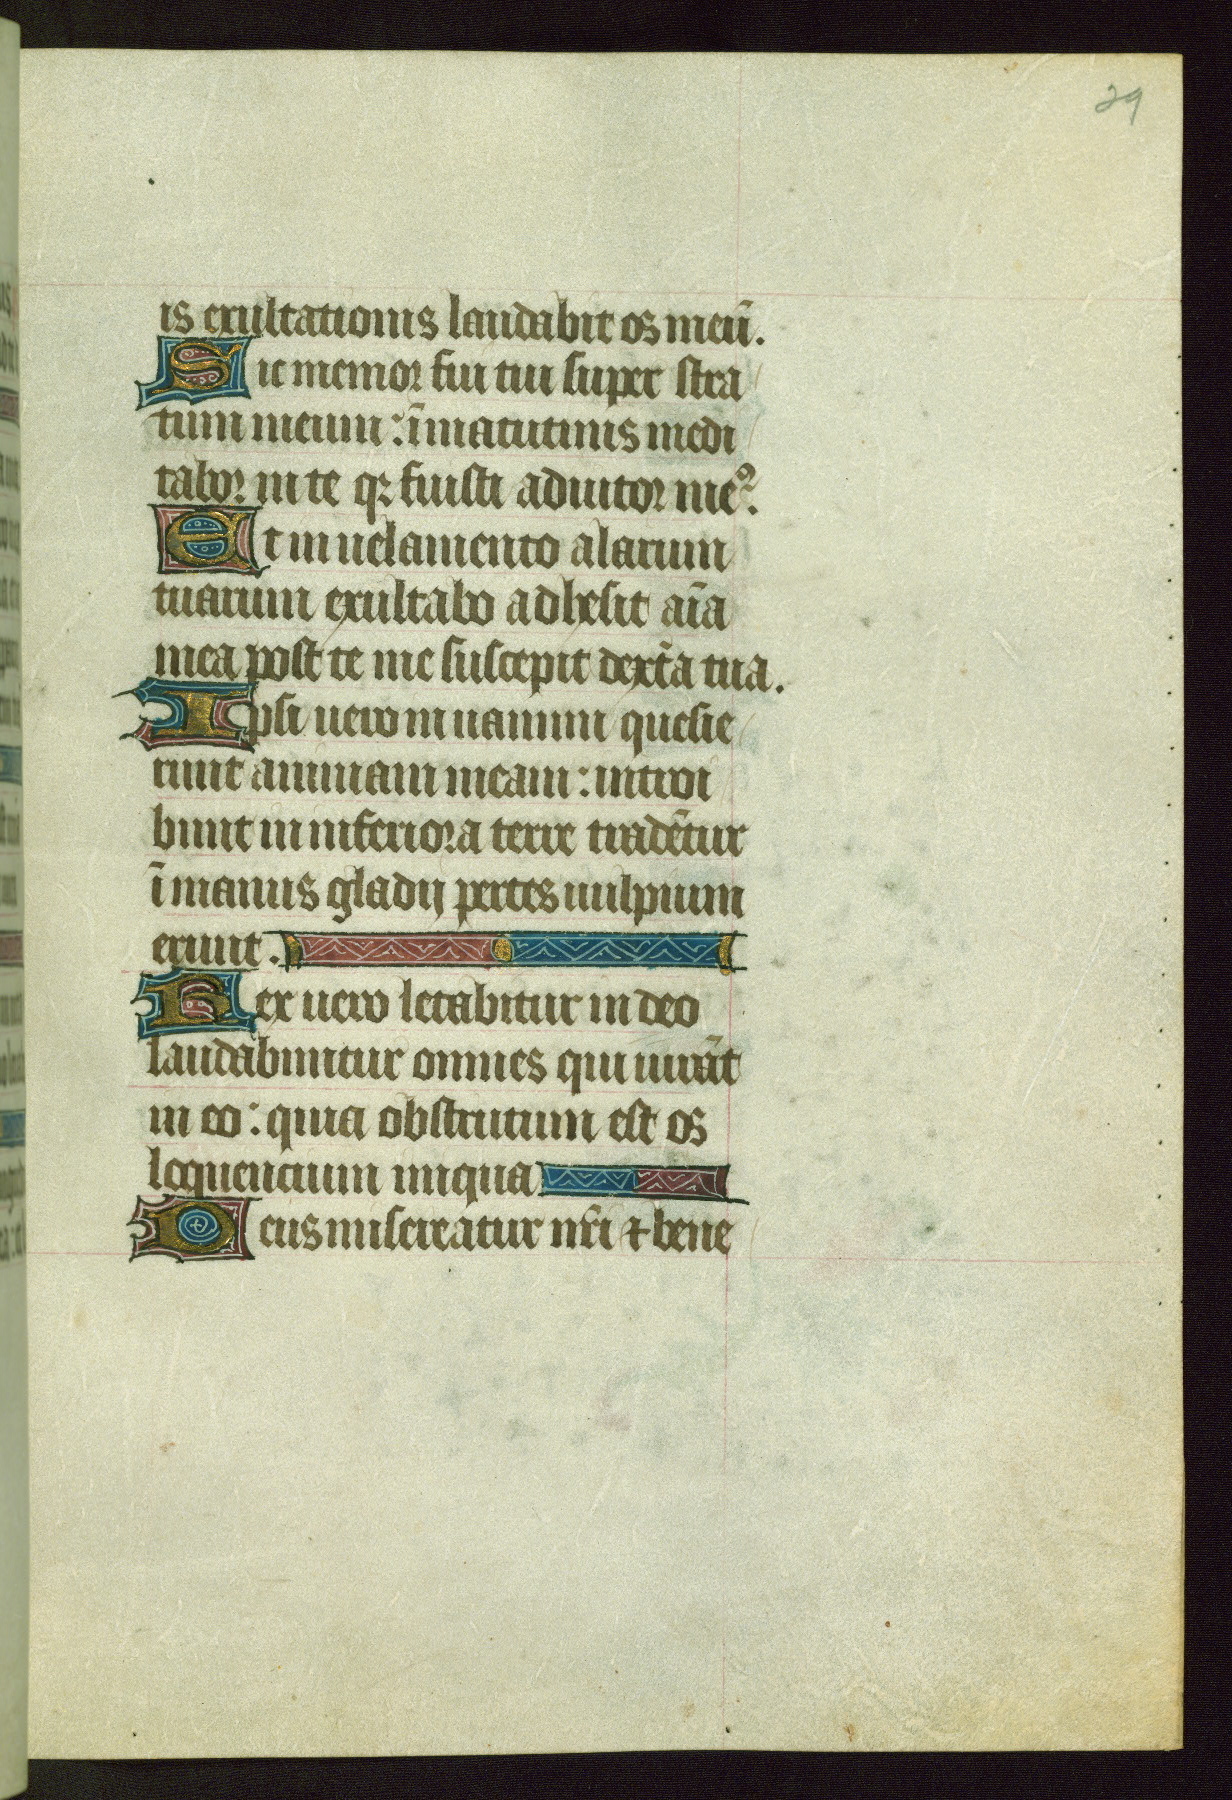 29
is exultationis laudabit os meū.
Sic memor fui tui super stra
tum meum : ī matutinis medi
tabor in te qꝛ fuisti adiutor meꝰ.
Et in uelamento alarum
tuarum exultabo adhesit aīa
mea post te me suscepit dext̄a tua.
Ipsi uero in uanum quesie
runt animam meam : introi
bunt in inferiora terre tradētur
ī manus gladij partes uulpium
erunt.
Rex uero letabitur in deo
laudabuntur omnes qui iurāt
in eo : quia obstrutum est os
loquencium iniqua
Deus misereatur nr̄i ⁊ bene